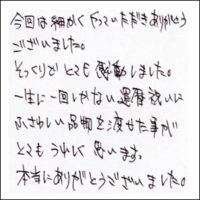 今回は細かくやっていただきありがとう
ございました。
そっくりでとても感動しました。
一生に一回しかない還暦祝いに
ふさわしい品物を渡せた事が
とてもうれしく思います。
本当にありがとうございました。